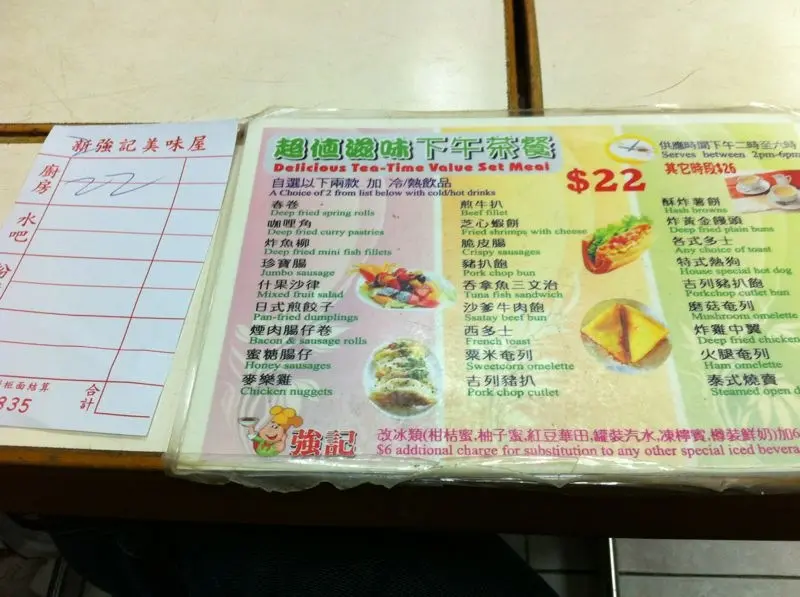 新強記美味屋
廚房
水吧
柜面結算
合計
835
超值滋味下午茶餐
Delicious Tea-Time Value Set Meal
自選以下兩款 加 冷/熱飲品
A Choice of 2 from list below with cold/hot drinks
$22
供應時間下午二時至六時
Serves between 2pm-6pm
其它時段$26
春卷
Deep fried spring rolls
咖哩角
Deep fried curry pastries
炸魚柳
Deep fried mini fish fillets
珍寶腸
Jumbo sausage
什果沙律
Mixed fruit salad
日式煎餃子
Pan-fried dumplings
煙肉腸仔卷
Bacon & sausage rolls
蜜糖腸仔
Honey sausages
麥樂雞
Chicken nuggets
煎牛扒
Beef fillet
芝心蝦餅
Fried shrimps with cheese
脆皮腸
Crispy sausages
豬扒飽
Pork chop bun
吞拿魚三文治
Tuna fish sandwich
沙爹牛肉飽
Ssatay beef bun
西多士
French toast
粟米奄列
Sweetcorn omelette
吉列豬扒
Pork chop cutlet
酥炸薯餅
Hash browns
炸黃金饅頭
Deep fried plain buns
各式多士
Any choice of toast
特式熱狗
House special hot dog
吉列豬扒飽
Porkchop cutlet bun
蘑菇奄列
Mushroom omelette
炸雞中翼
Deep fried chicken
火腿奄列
Ham omelette
泰式燒賣
Steamed open
強記
改冰類(柑桔蜜,柚子蜜,紅豆華田,罐裝汽水,凍檸賓,樽裝鮮奶)加6
$6 addtional charge for substitution to any other special iced